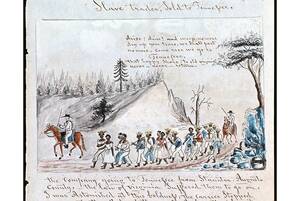 Slave trader, Sold to Tennessee.
Arise! Arise! and weep no more
dry up your tears, we shall part
no more. Come rose we go to
Tennessee,
that happy shore, to old virginia
never - never - return.
The Company going to Tennessee from Staunton, Augusta
County, the law of Virginia Suffered them to go on.
I was Astonished at this boldness, the carrier Stopped